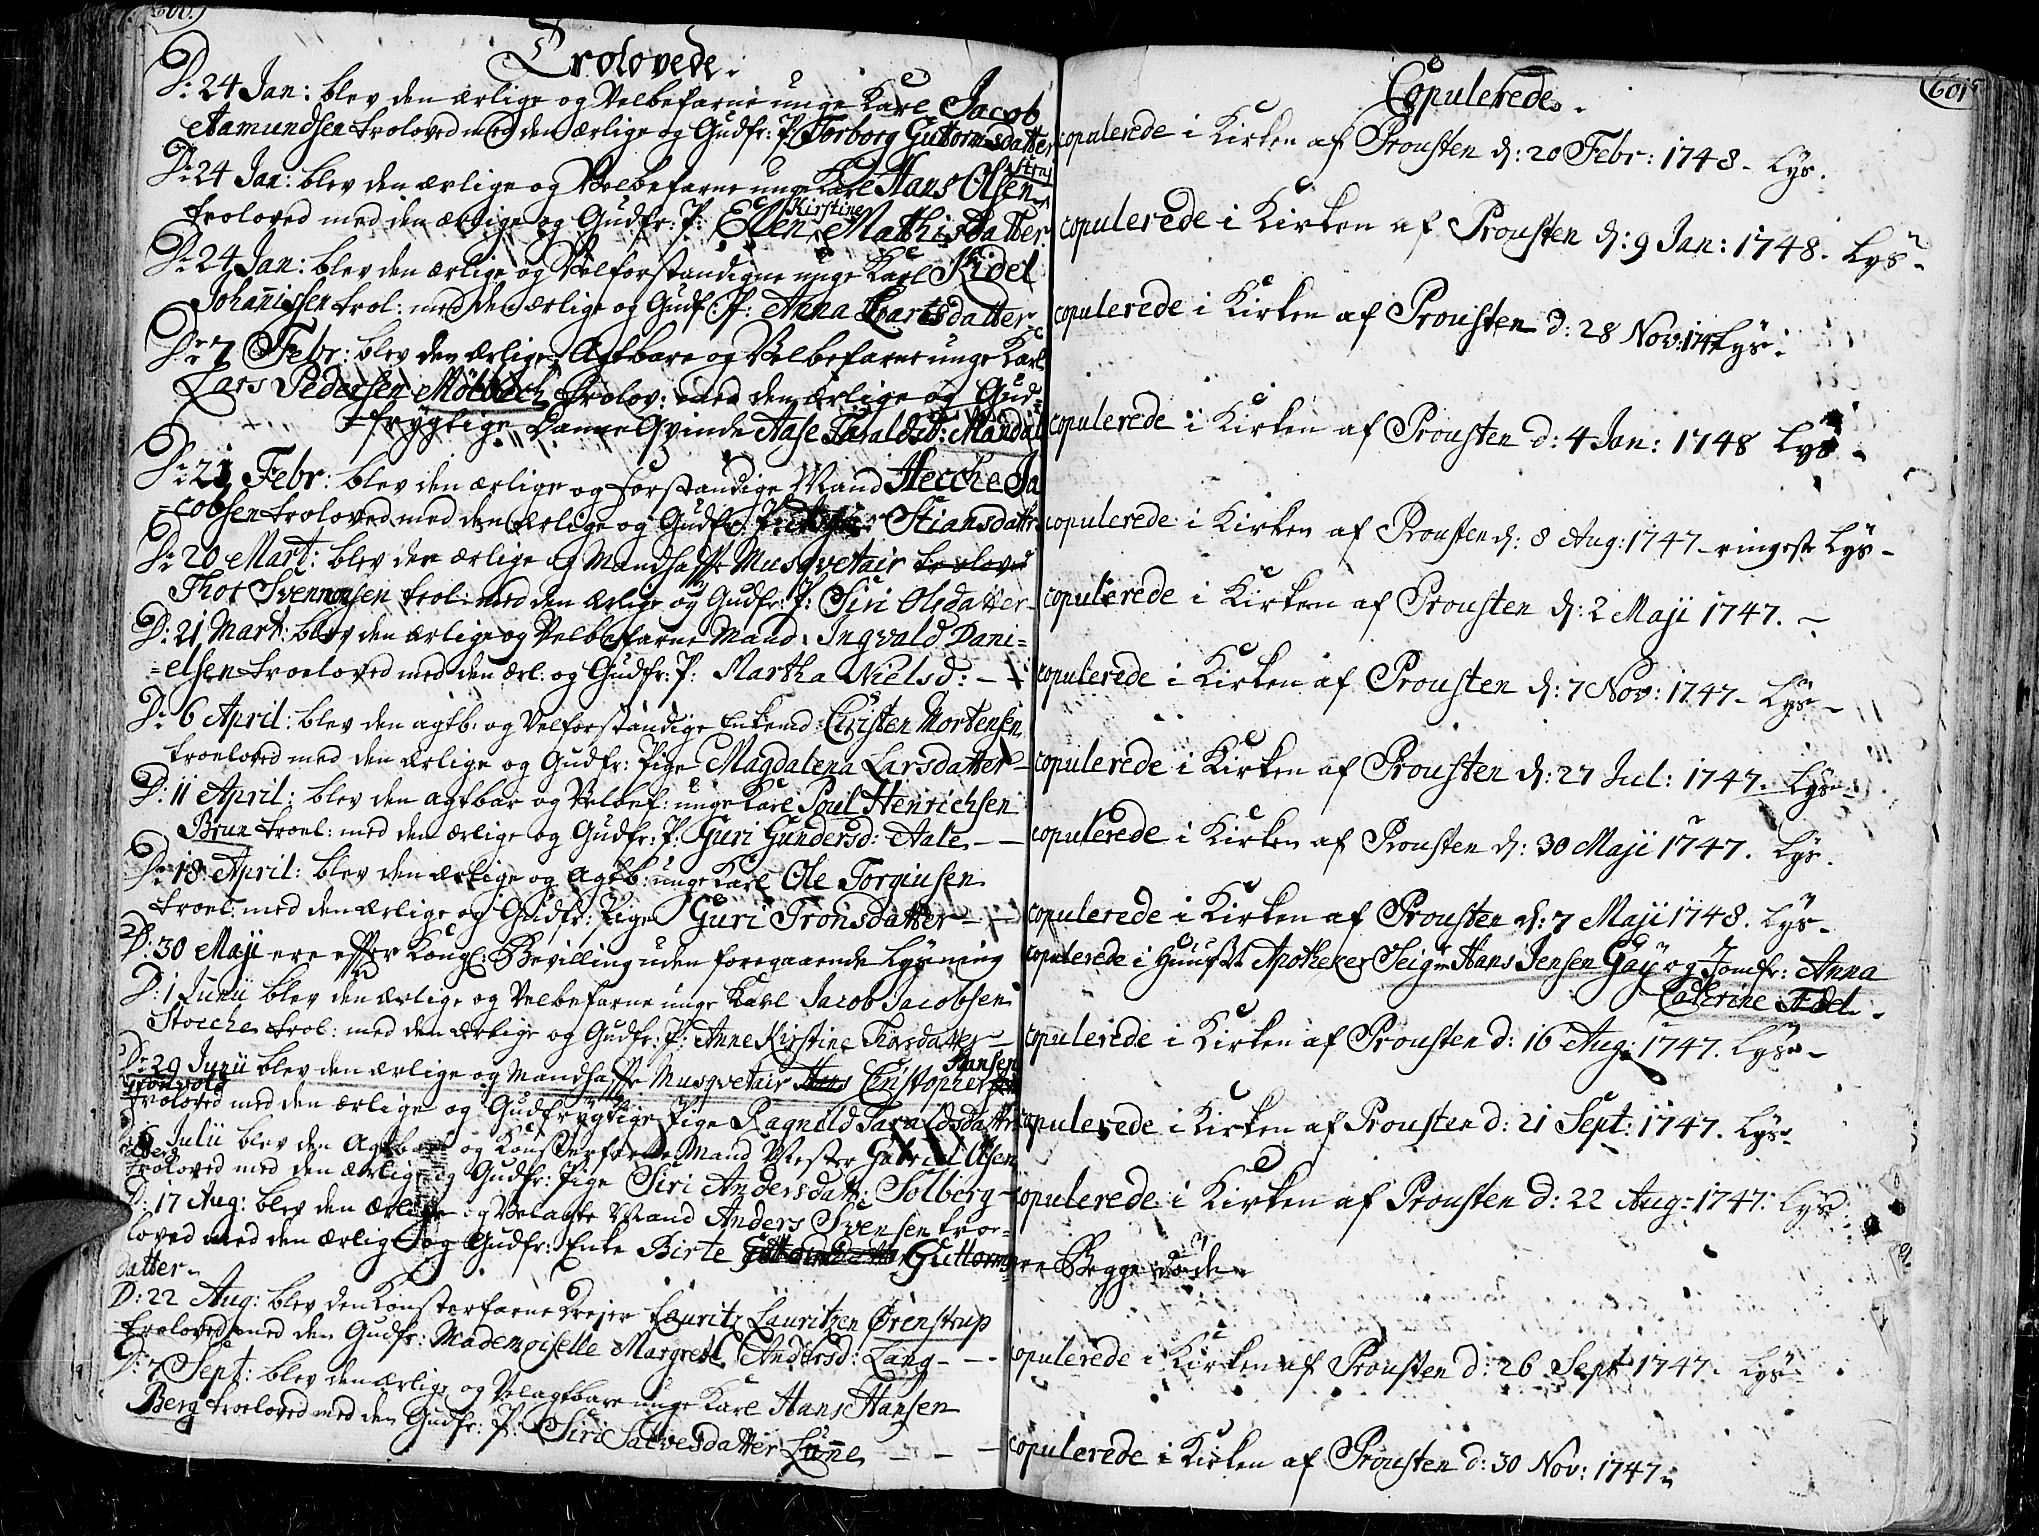 600.
Trolovede.
D: 24 Jan: blev den ærlige og Velbefarne unge Karl Jacob
Aamundsen troloved med den ærlige og Gudfr: P: Torborg Guttormsdatter
D: 24 Jan: blev den ærlige og Velbefarne unge Karl Hans Olsen
troloved med den ærlige og Gudfr: P: Ellen Kirstine Mathisdatter
D: 24 Jan: blev den ærlige og Velforstandigne unge Karl Kidel
Johanissen trol: med den ærlige og Gudf: P: Anna Lartsdatter
D: 7 Febr: blev den ærlige, Agtbare og Velbefarne unge Karl
Lars Pedersen Mölbach trolov: med den ærlige og Gud-
frygtige Danneqvinde Aase Taraldsd: Mandal
D: 21 Febr: blev den ærlige og forstandige Mand Herche Ja
cobsen troloved med den ærlige og Gudfr: Stiansdattr
D: 20 Mart: blev den ærlige og Mandhafte Musqvetair troloved
Thor Svennonsen trol: med den ærlige og Gudfr: P: Siri Olsdatter
D: 21 Mart: blev den ærlige og Velbefarne Mand Ingvald Dani-
elsen troeloved med den ærl: og Gudfr: P: Martha Nielsd: -
D: 6 April: blev den agtb: og Velforstandige Enkemd: Christen Mortensen
troeloved med den ærlige og Gudfr: Pige Magdalena Larsdatter
D: 11 April: blev den agtbar og Velbef: unge Karl Poul Henrichsen
Brun troel: med den ærlige og Gudfr: P: Guri Gundersd: Aale
D: 18 April: blev den ærlige og Agtb: unge Karl Ole Torgiusen
troel: med den ærlige og Gudfr: Pige Guri Tronsdatter
D: 30 Maji ere efter Kongl: Bevilling uden foregaaende Lysning
D: 1 Junii blev den ærlige og Velbefarne unge Karl Jacob Jacobsen
Stoeche trol: med den ærlige og Gudfr: P: Anne Kirstine
D: 29 Junii blev den ærlige og Mandhafte Musqvetair Hans Christopher Hansen
troloved med den ærlige og Gudfrygtige Pige Ragnild Taraldsdatter
Julii blev den Agtbare og Konsterfarne Mand Mester Gabriel Olsen
troloved med den ærlige og Gudfr: Pige Siri Andersdatt: Solberg
D: 17 Aug: blev den ærlige og Velagte Mand Anders Svensen troe-
loved med den ærlige og Gudfr: Enke Birte Guttorms
datter
D: 22 Aug: blev den Konsterfarne Dreier Lauritz Lauritzen Ørenstrup
troloved med den Gudfr: Mademoiselle Margrete Andersd: Lang
D: 7 Sept: blev den ærlige og Velagtbare unge Karl Hans Hansen
Berg troeloved med den Gudfr: P: Siri Salvesdatter Lunne
601
Copulerede.
copulerede i Kirken af Prousten d: 20 Febr: 1748 - Lys.
copulerede i Kirken af Prousten d: 9 Jan: 1748. Lys
copulerede i Kirken af Prousten d: 28 Nov: 1747 Lys.
copulerede i Kirken af Prousten d: 4 Jan: 1748 Lys
copulerede i Kirken af Prousten d: 8 Aug: 1747 - ringeste Lys -
copulerede i Kirken af Prousten d: 2 Maji 1747.
copulerede i Kirken af Prousten d: 7 Nov: 1747 - Lys
copulerede i Kirken af Prousten d: 27 Jul: 1747. Lys
copulerede i Kirken af Prousten d: 30 Maji 1747. Lys.
copulerede i Kirken af Prousten d: 7 Maji 1748. Lys -
copulerede i Huuset Apotheker Seigr Hans Jensen Gay og Jomfr: Anna
Caterine Fedel.
copulerede i Kirken af Prousten d: 16 Aug: 1747. Lys -
copulerede i Kirken af Prousten d: 21 Sept: 1747. Lys
copulerede i Kirken af Prousten d: 22 Aug: 1747: Lys
ere Begge døde
copulerede i Kirken af Prousten d: 26 Sept 1747. Lys
copulerede i Kirken af Prousten d: 30 Nov: 1747